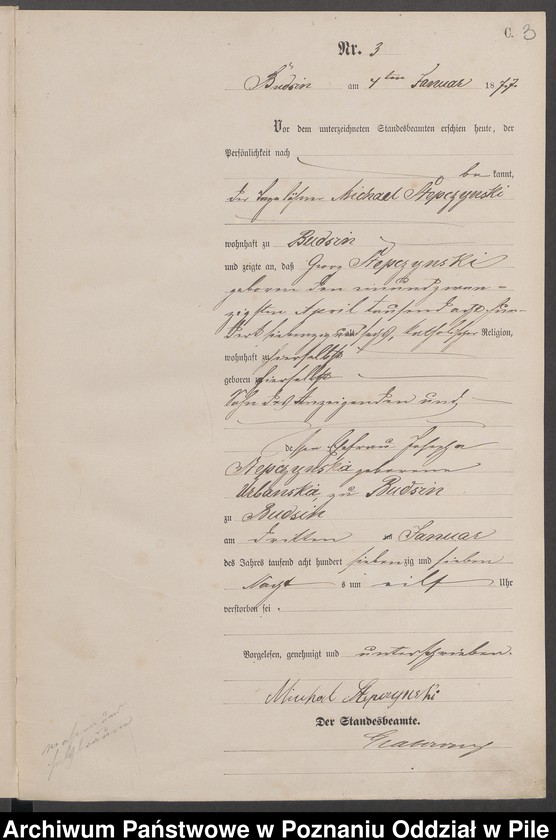 C. 3
Nr. 3
Budsin am 4ten Januar 1877
Vor dem unterzeichneten Standesbeamten erschien heute, der
Persönlichkeit nach
be kannt,
der Tagelöhner Michael Stępczynski
wohnhaft zu Budsin
und zeigte an, daß Georg Stępczynski
geboren den einundzwan-
zigsten April tausend acht hun-
dert siebenzig und sechs, katholischer Religion,
wohnhaft zu hierselbst
geboren zu hierselbst
Sohn des Anzeigenden und
dessen Ehefrau Josepha
Stępczynska geborene
Urbanska, zu Budsin
zu Budsin
am dritten Januar
des Jahres tausend acht hundert siebenzig und sieben
Nachts um eilf Uhr
verstorben sei.
Vorgelesen, genehmigt und unterschrieben.
Michal Stępczynski
Der Standesbeamte.
Archiwum Państwowe w Poznaniu Oddział w Pile